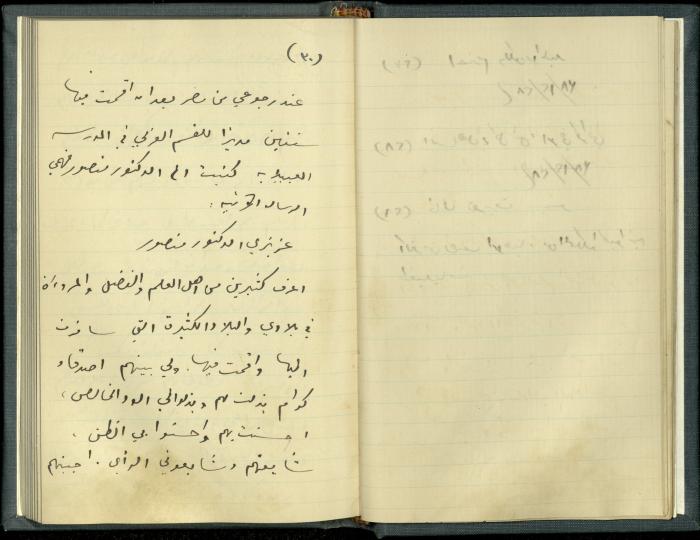 (٣٠)
عند رجوعي من مصر بعد ان اقمت فيها
سنتين مديرًا للقسم العربي في المدرسة
العبيدية كتبت الى الدكتور منصور فهمي
الرسالة الآتية :
عزيزي الدكتور منصور
اعرف كثيرين من اهل العلم والفضل والمروءة
في بلادي والبلاد الكثيرة التي سافرت
اليها واقمت فيها. ولي بينهم اصدقاء
كرام بذلت لهم وبذلوا لي الود الخالص،
احسنت بهم واحسنوا بي الظن.
شايعتهم وشايعوني الرأي. احببتهم